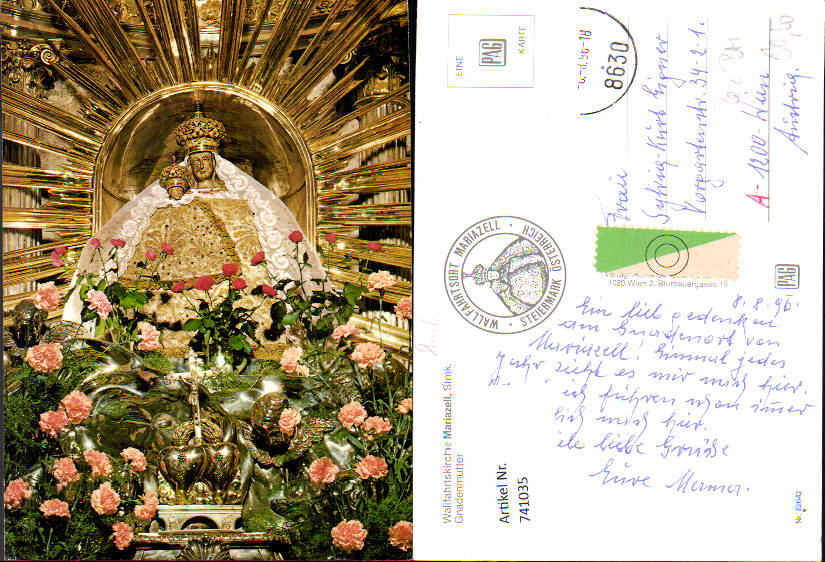 EINE PAG KARTE
-8.96-18
8630
Frau
Kurt Eigner
Vorgartenstr. 39-2-1.
A-1200-Wien
Austria.
WALLFAHRTSORT MARIAZELL · STEIERMARK · ÖSTERREICH
1020 Wien 2, Blumauergasse 19
PAG
8.8.96
Ein lieb gedenken
am Gnadenort von
Mariazell! Einmal jedes
Jahr zieht es mir mich hier.
ich
mich hier.
liebe Grüße
Eure Mama.
Wallfahrtskirche Mariazell, Stmk.
Gnadenmutter
Artikel Nr.
741035
Nr. 82642